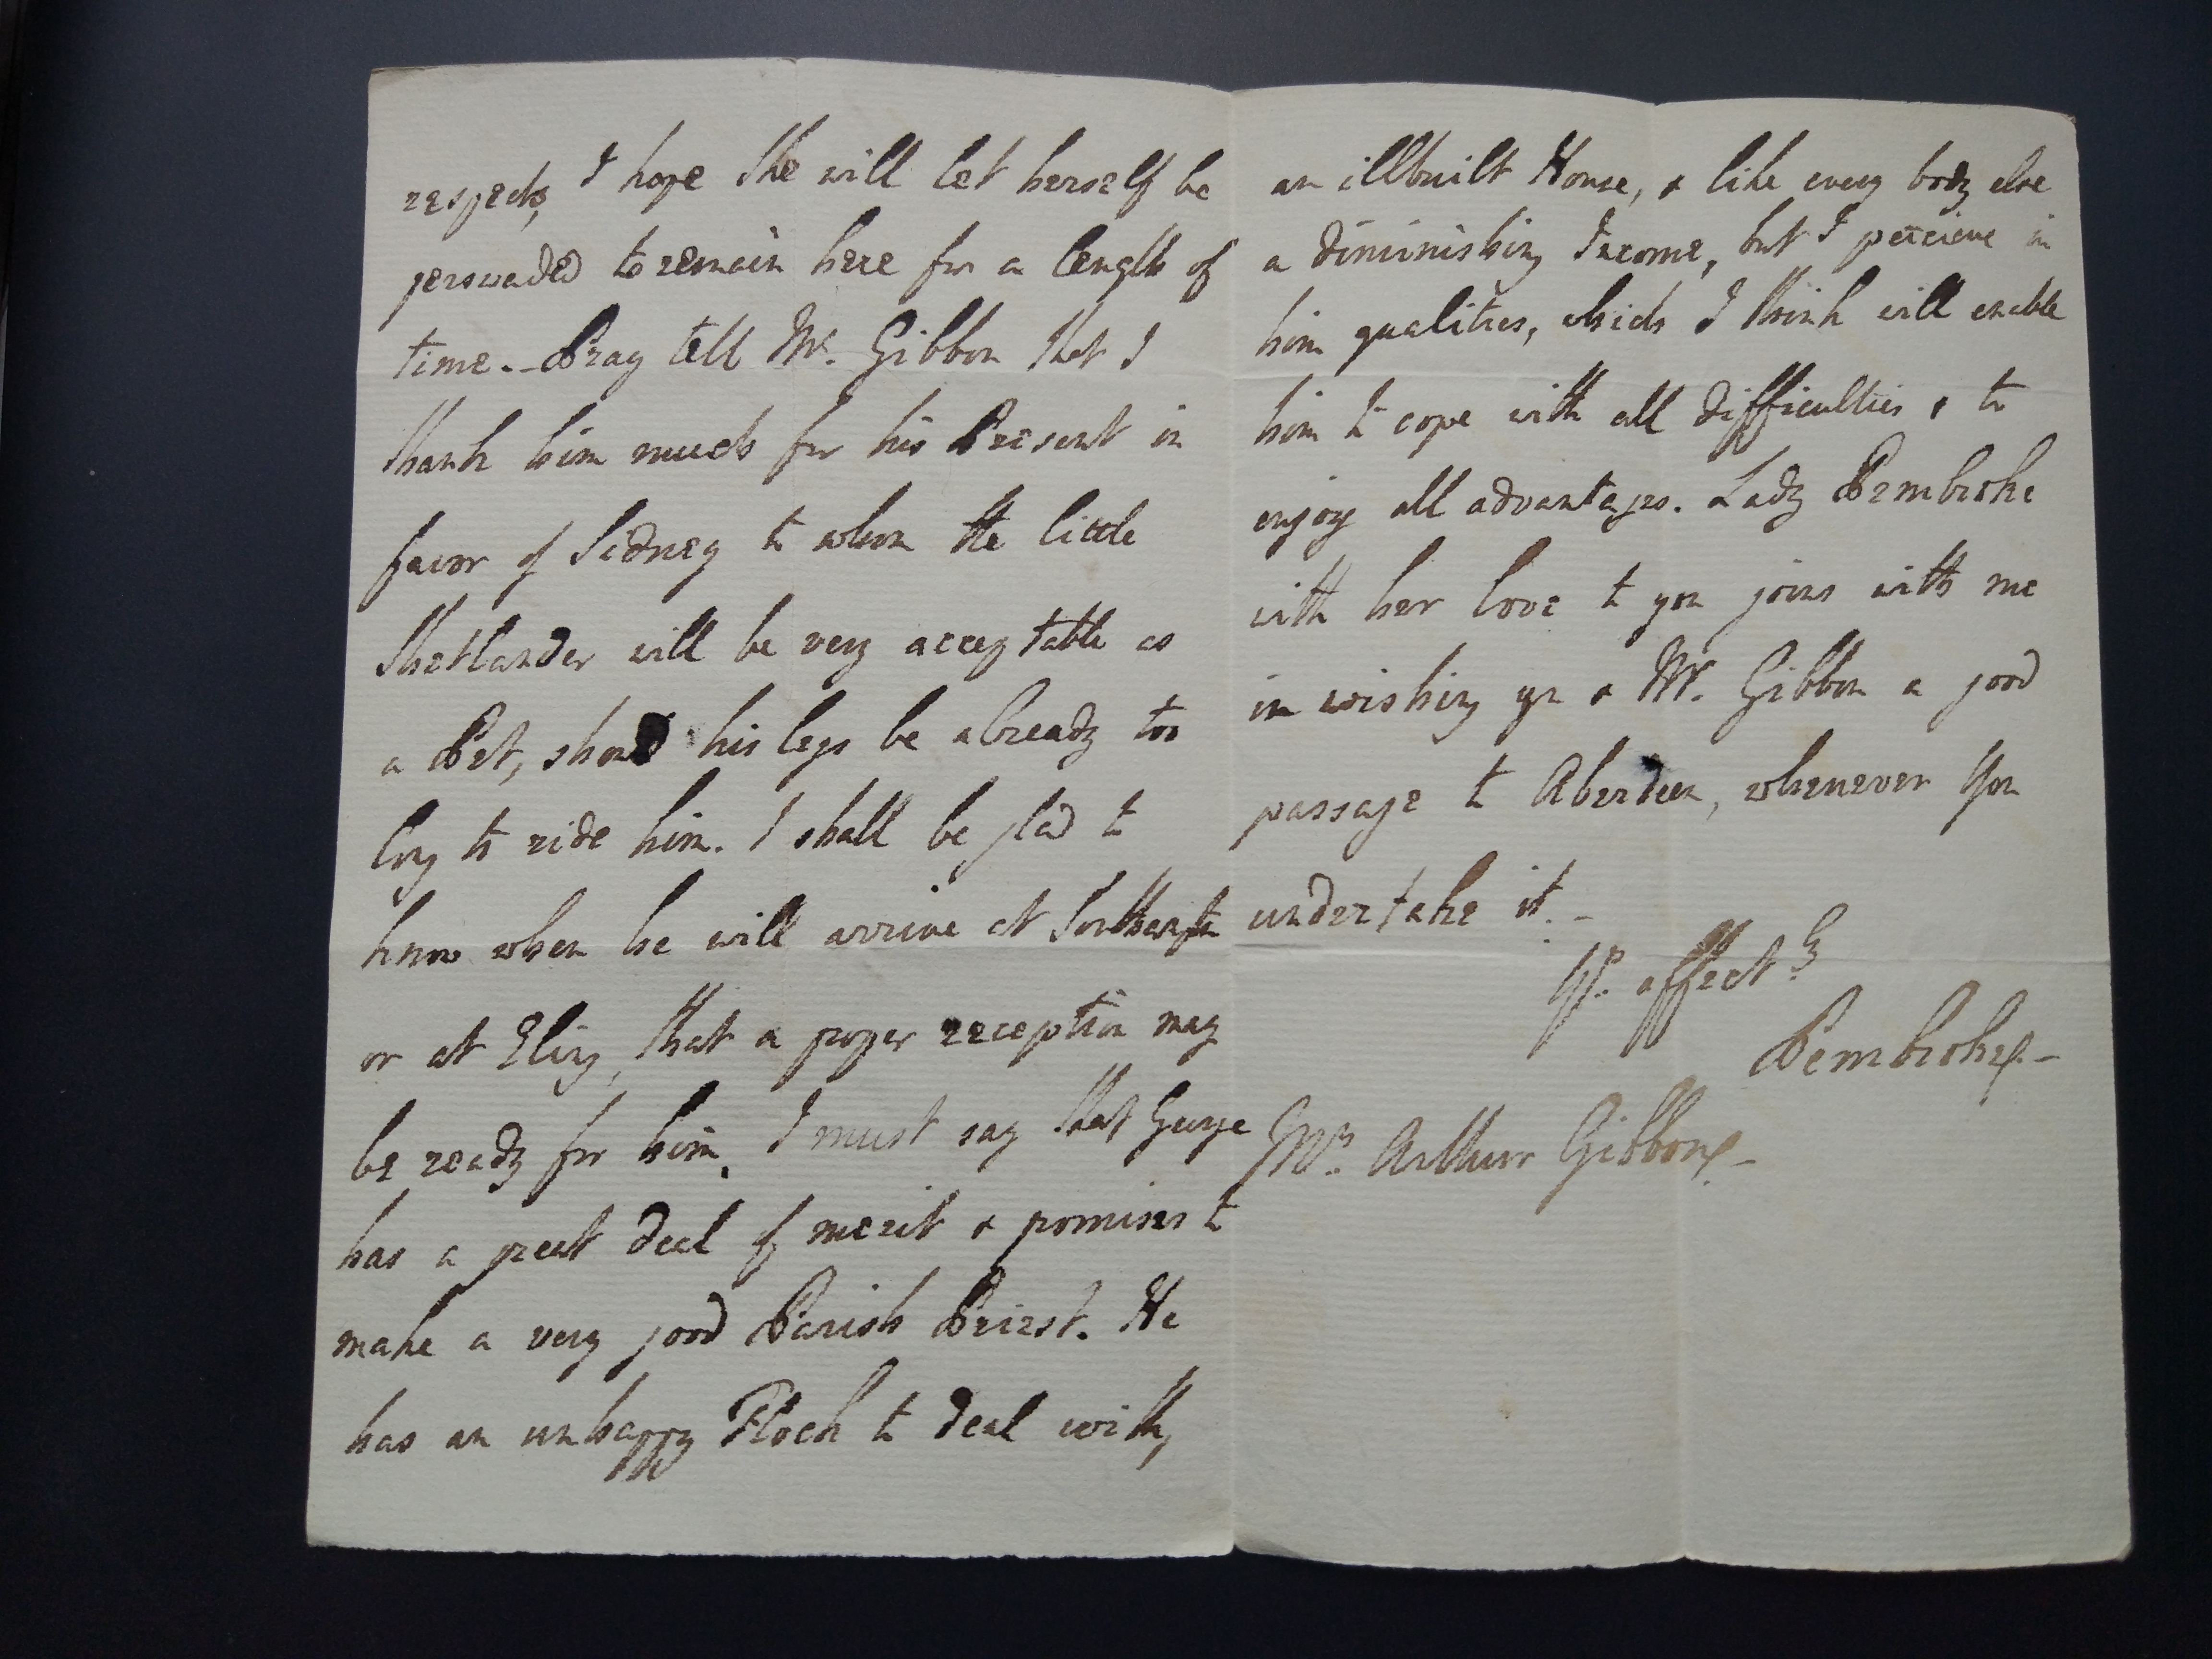 respects, I hope She will let herself be
perswaded to remain here for a length of
time. – Pray tell Mr. Gibbon that I
thank him much for his Present in
favor of Sidney to whom the little
Shetlander will be very acceptable as
a Pet, shoud his legs be already too
long to ride him. I shall be glad to
know when he will arrive at Southampton
or at Eling, that a proper reception may
be ready for him. I must say that George
has a great deal of merit & promises to
make a very good Parish Priest. He
has an unhappy Flock to deal with,
an illbuilt House, & like every body else
a diminishing Income, but I perceive in
him qualities, which I think will enable
him to cope with all difficulties & to
enjoy all advantages. Lady Pembroke
with her love to you joins with me
in wishing you & Mr. Gibbon a good
passage to Aberdeen, whenever You
undertake it. –
Yr. affect.ly
Pembroke –
Mrs. Arthur Gibbon –